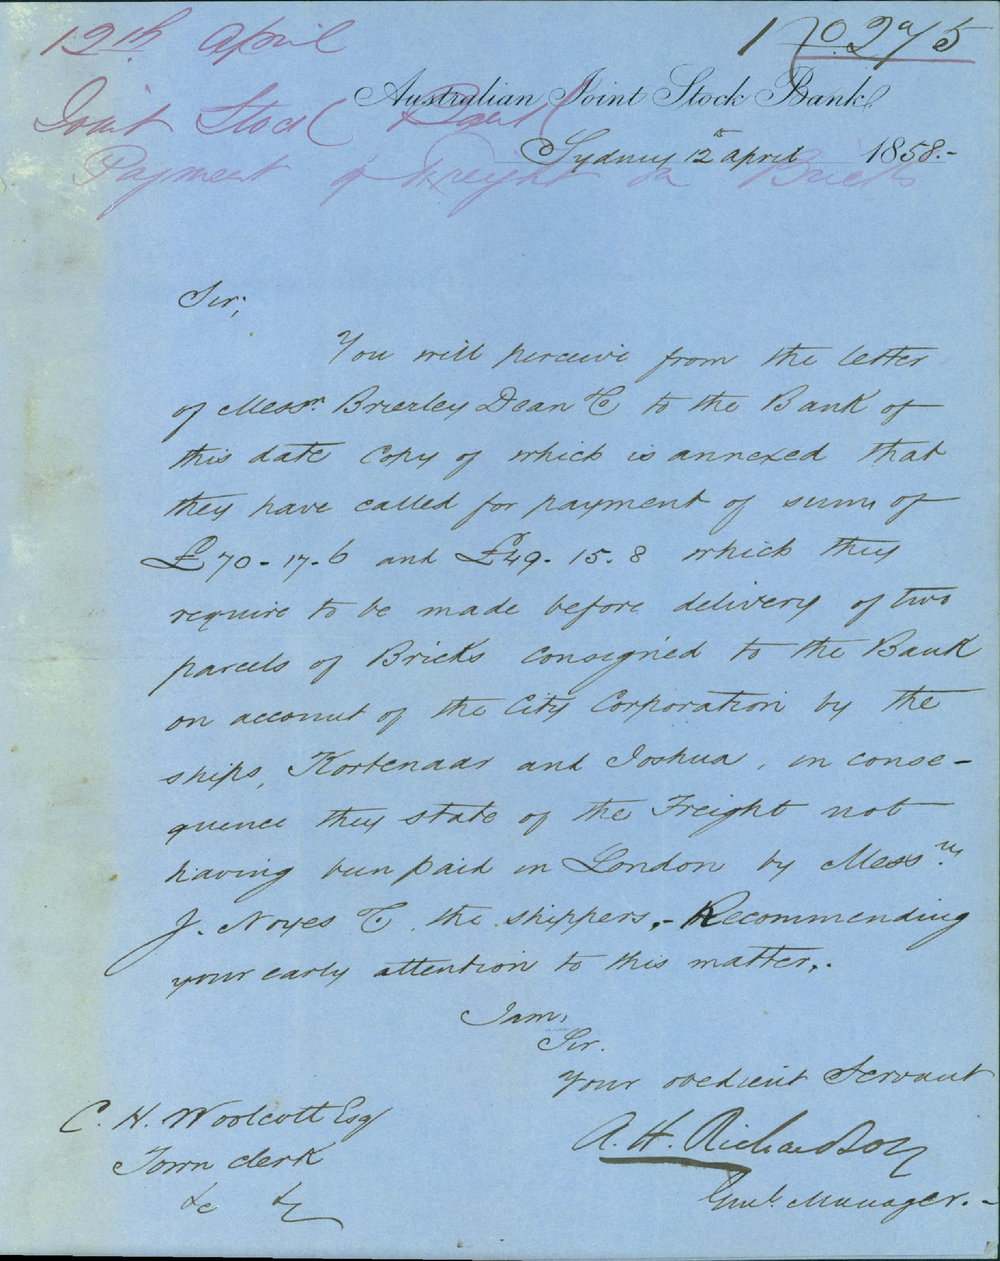 12th April
No. 275
Joint Stock Bank
Payment of Freight on Bricks
Australian Joint Stock Bank,
Sydney 12th April 1858.-
Sir,
You will perceive from the letter
of Messrs. Brierley Dean & Co to the Bank of
this date Copy of which is annexed that
they have called for payment of sums of
£70-17-6 and £49-15.8 which they
require to be made before delivery of two
parcels of Bricks consigned to the Bank
on account of the City Corporation by the
ships, Kortenaar and Joshua, in conse-
quence they state of the Freight not
having been paid in London by Messrs.
J. Noyes & Co. the shippers.- Recommending
your early attention to this matter,.
I am,
Sir.
Your obedient Servant
A. H. Richardson
Genl. Manager.-
C. H. Woolcott Esq
Town Clerk
&c &c